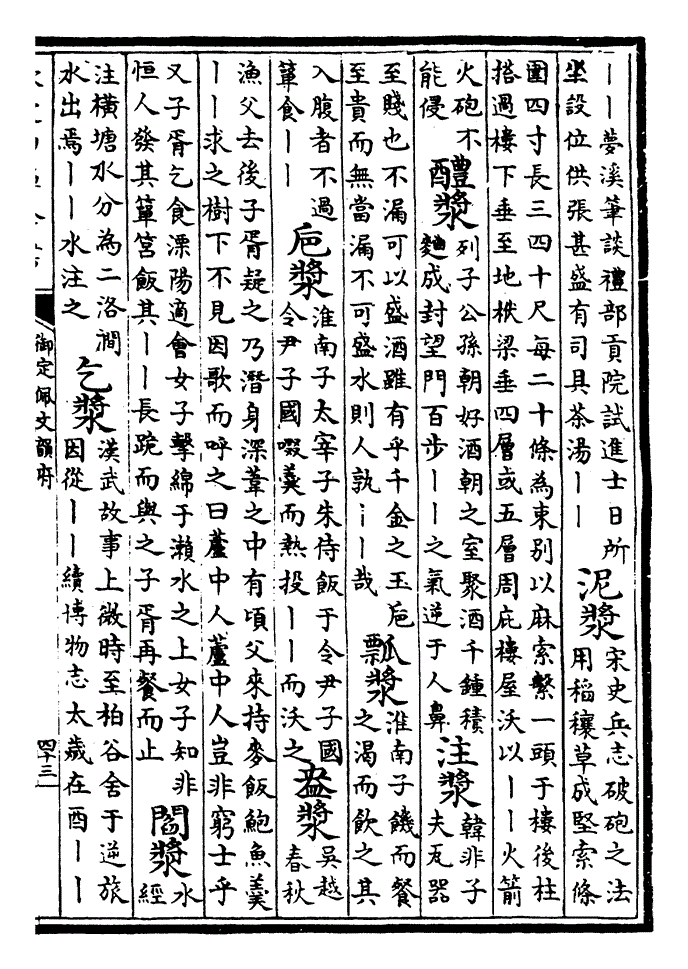 丨丨夢溪筆談禮部貢院試進士日所
坐設位供張甚盛有司具茶湯丨丨
泥漿
宋史兵志破砲之法
用稻穰草成堅索條
圍四寸長三四十尺每二十條為束別以麻索繫一頭于樓後柱
搭過樓下垂至地栿梁垂四層或五層周庇樓屋沃以丨丨火箭
火砲不
能侵
醴漿
列子公孫朝好酒朝之室聚酒千鍾積
麯成封望門百步丨丨之氣逆于人鼻
注漿
韓非子
夫瓦器
至賤也不漏可以盛酒雖有乎千金之玉巵
至貴而無當漏不可盛水則人孰丨丨哉
瓢漿
淮南子饑而餐
之渴而飲之其
入腹者不過
簞食丨丨
巵漿
淮南子太宰子朱侍飯于令尹子國
令尹子國啜羹而熱投丨丨而沃之
盎漿
吳越
春秋
漁父去後子胥疑之乃潛身深葦之中有頃父來持麥飯鮑魚羹
丨丨求之樹下不見因歌而呼之曰蘆中人蘆中人豈非窮士乎
又子胥乞食溧陽適會女子擊綿于瀨水之上女子知非
恒人發其簞筥飯其丨丨長跪而與之子胥再餐而止
閻漿
水
經
注橫塘水分為二洛澗
水出焉丨丨水注之
乞漿
漢武故事上微時至柏谷舍于逆旅
因從丨丨續博物志太歲在酉丨丨
御定佩文韻府
四十三